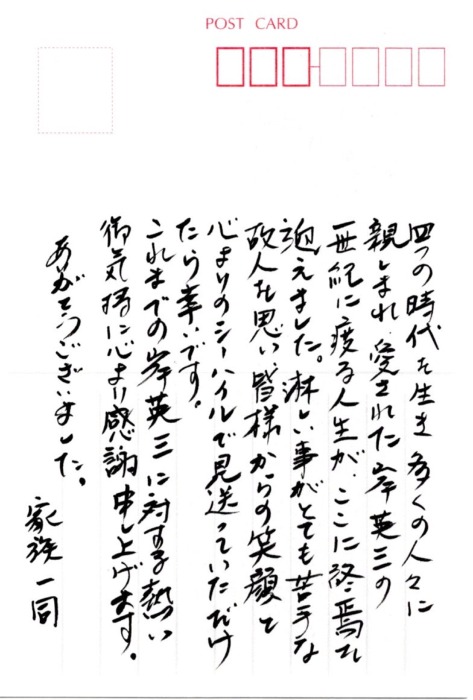 POST CARD
四つの時代を生き 多くの人々に
親しまれ 愛された 岸 英三の
一世紀に渡る人生が、ここに終焉を
迎えました。淋しい事がとても苦手な
故人を思い、皆様からの笑顔と
心よりのシーハイルで見送っていただけ
たら幸いです。
これまでの岸英三に対する熱い
御気持に心より感謝申し上げます。
ありがとうございました。
家族一同